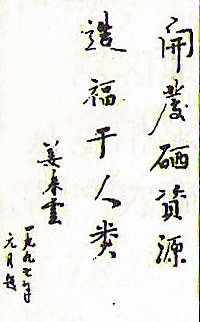 開發硒資源
造福于人类
姜春雲
一九九七年
元月題